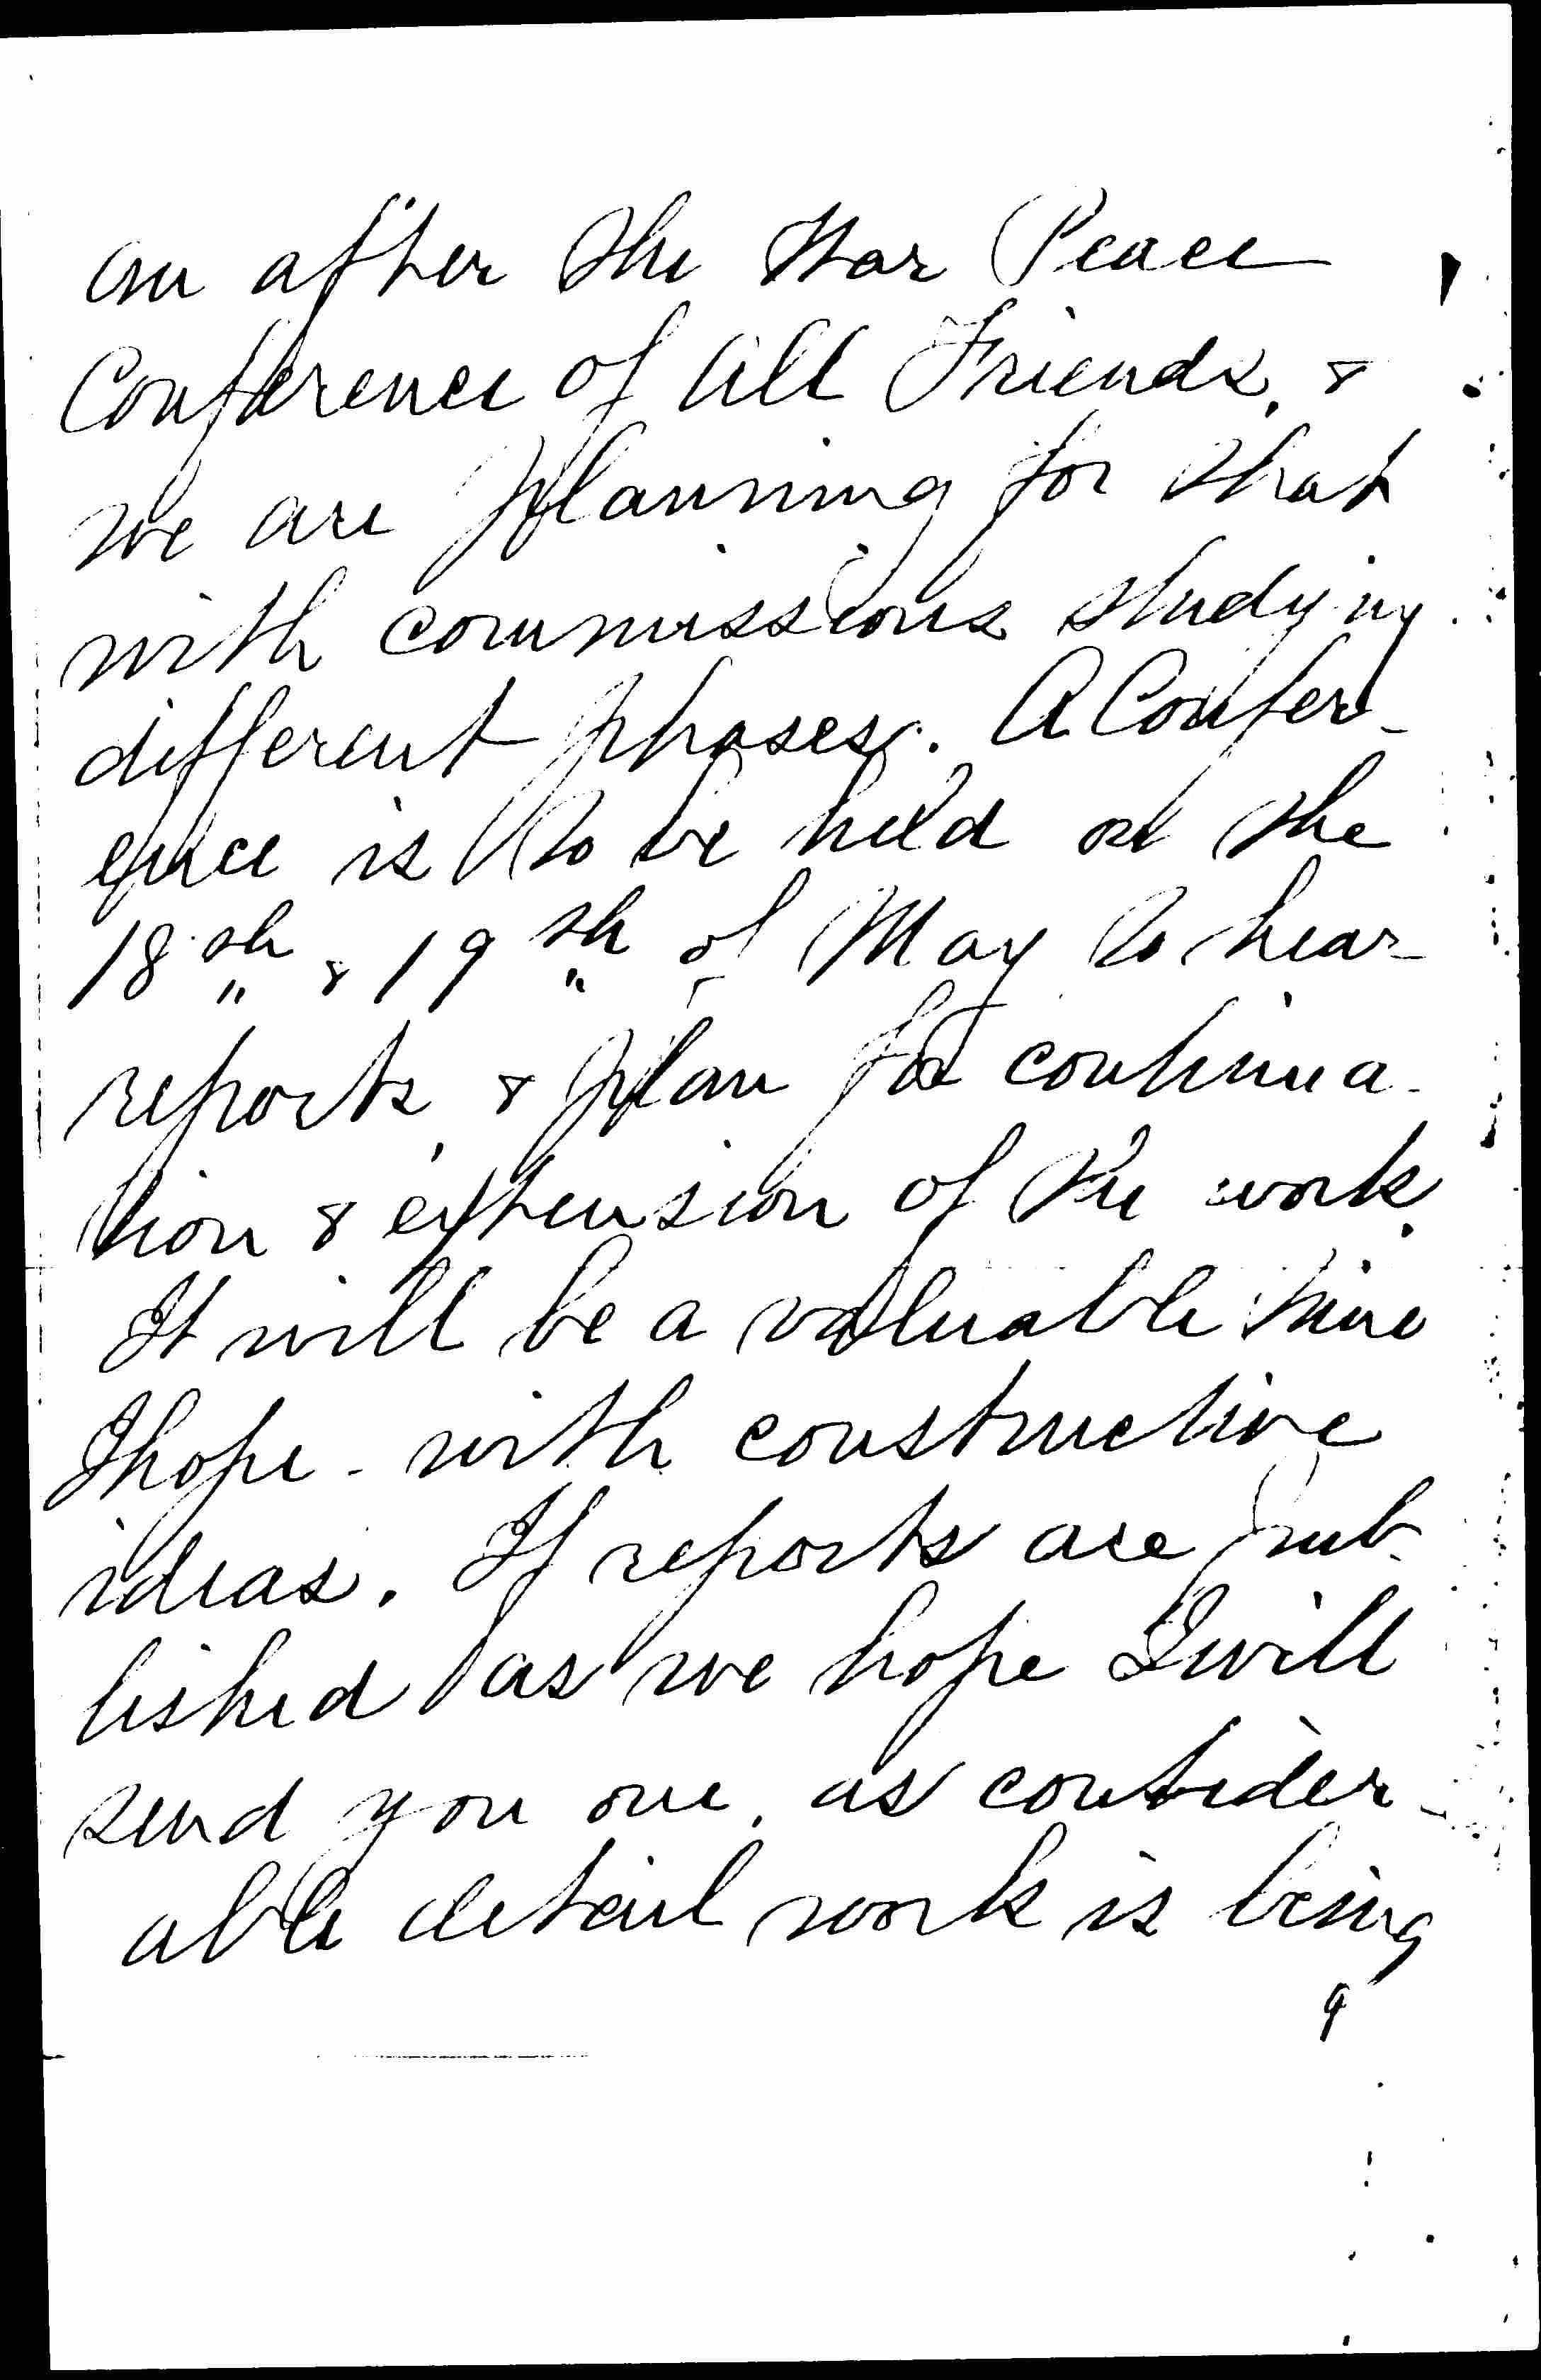 an after the War Peace
Conference of all Friends, &
we are planning for that
with commissions studying
different phases. A Confer-
ence is to be held on the
18th & 19th of May to hear
reports, & plan for continua-
tion & extension of the work.
It will be a valuable time
I hope - with constructive
ideas. If reports are pub-
lished as we hope I will
send you one, as consider-
able detail work is being